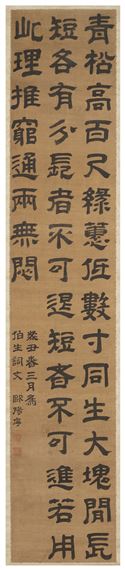 青松高百尺綠蕙低數寸同生大塊閒長
短各有分長者不可退短者不可進若用
此理推窮通兩無悶
癸丑春三月為
伯生詞丈 歐陽